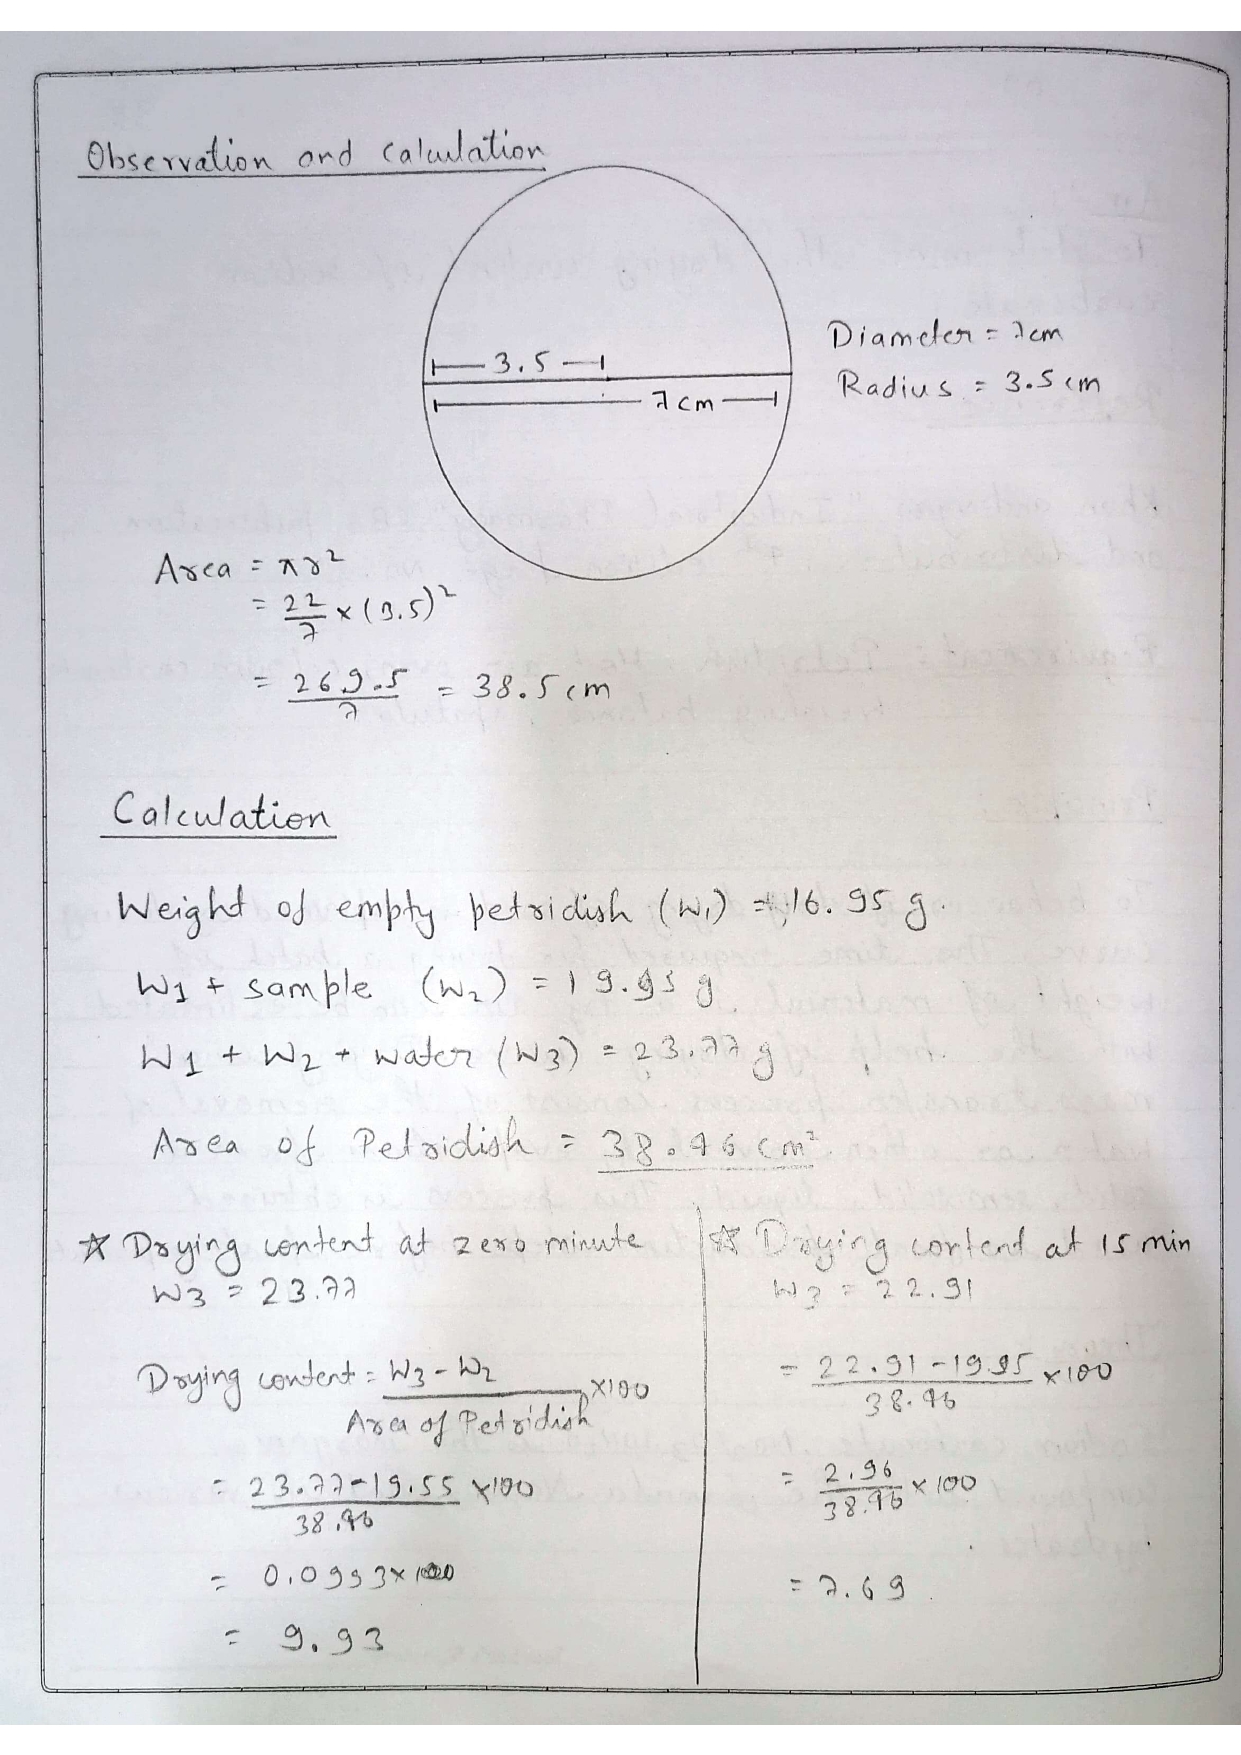 Observation and calculation
3.5
7cm
Diameter = 7cm
Radius = 3.5 cm
Area = πr²
= 22/7 × (3.5)²
= 269.5/7 = 38.5 cm
Calculation
Weight of empty petridish (W1) = 16.95 g.
W1 + sample (W2) = 19.95 g
W1 + W2 + water (W3) = 23.77 g
Area of Petridish = 38.46 cm².
☆ Drying content at zero minute
W3 = 23.77
Drying content = W3 - W2 / Area of Petridish ×100
= 23.77-19.55 / 38.46 ×100
= 0.0993×100
= 9.93
☆ Drying content at 15 min
W3 = 22.91
= 22.91-19.95 / 38.46 ×100
= 2.96 / 38.46 ×100
= 7.69